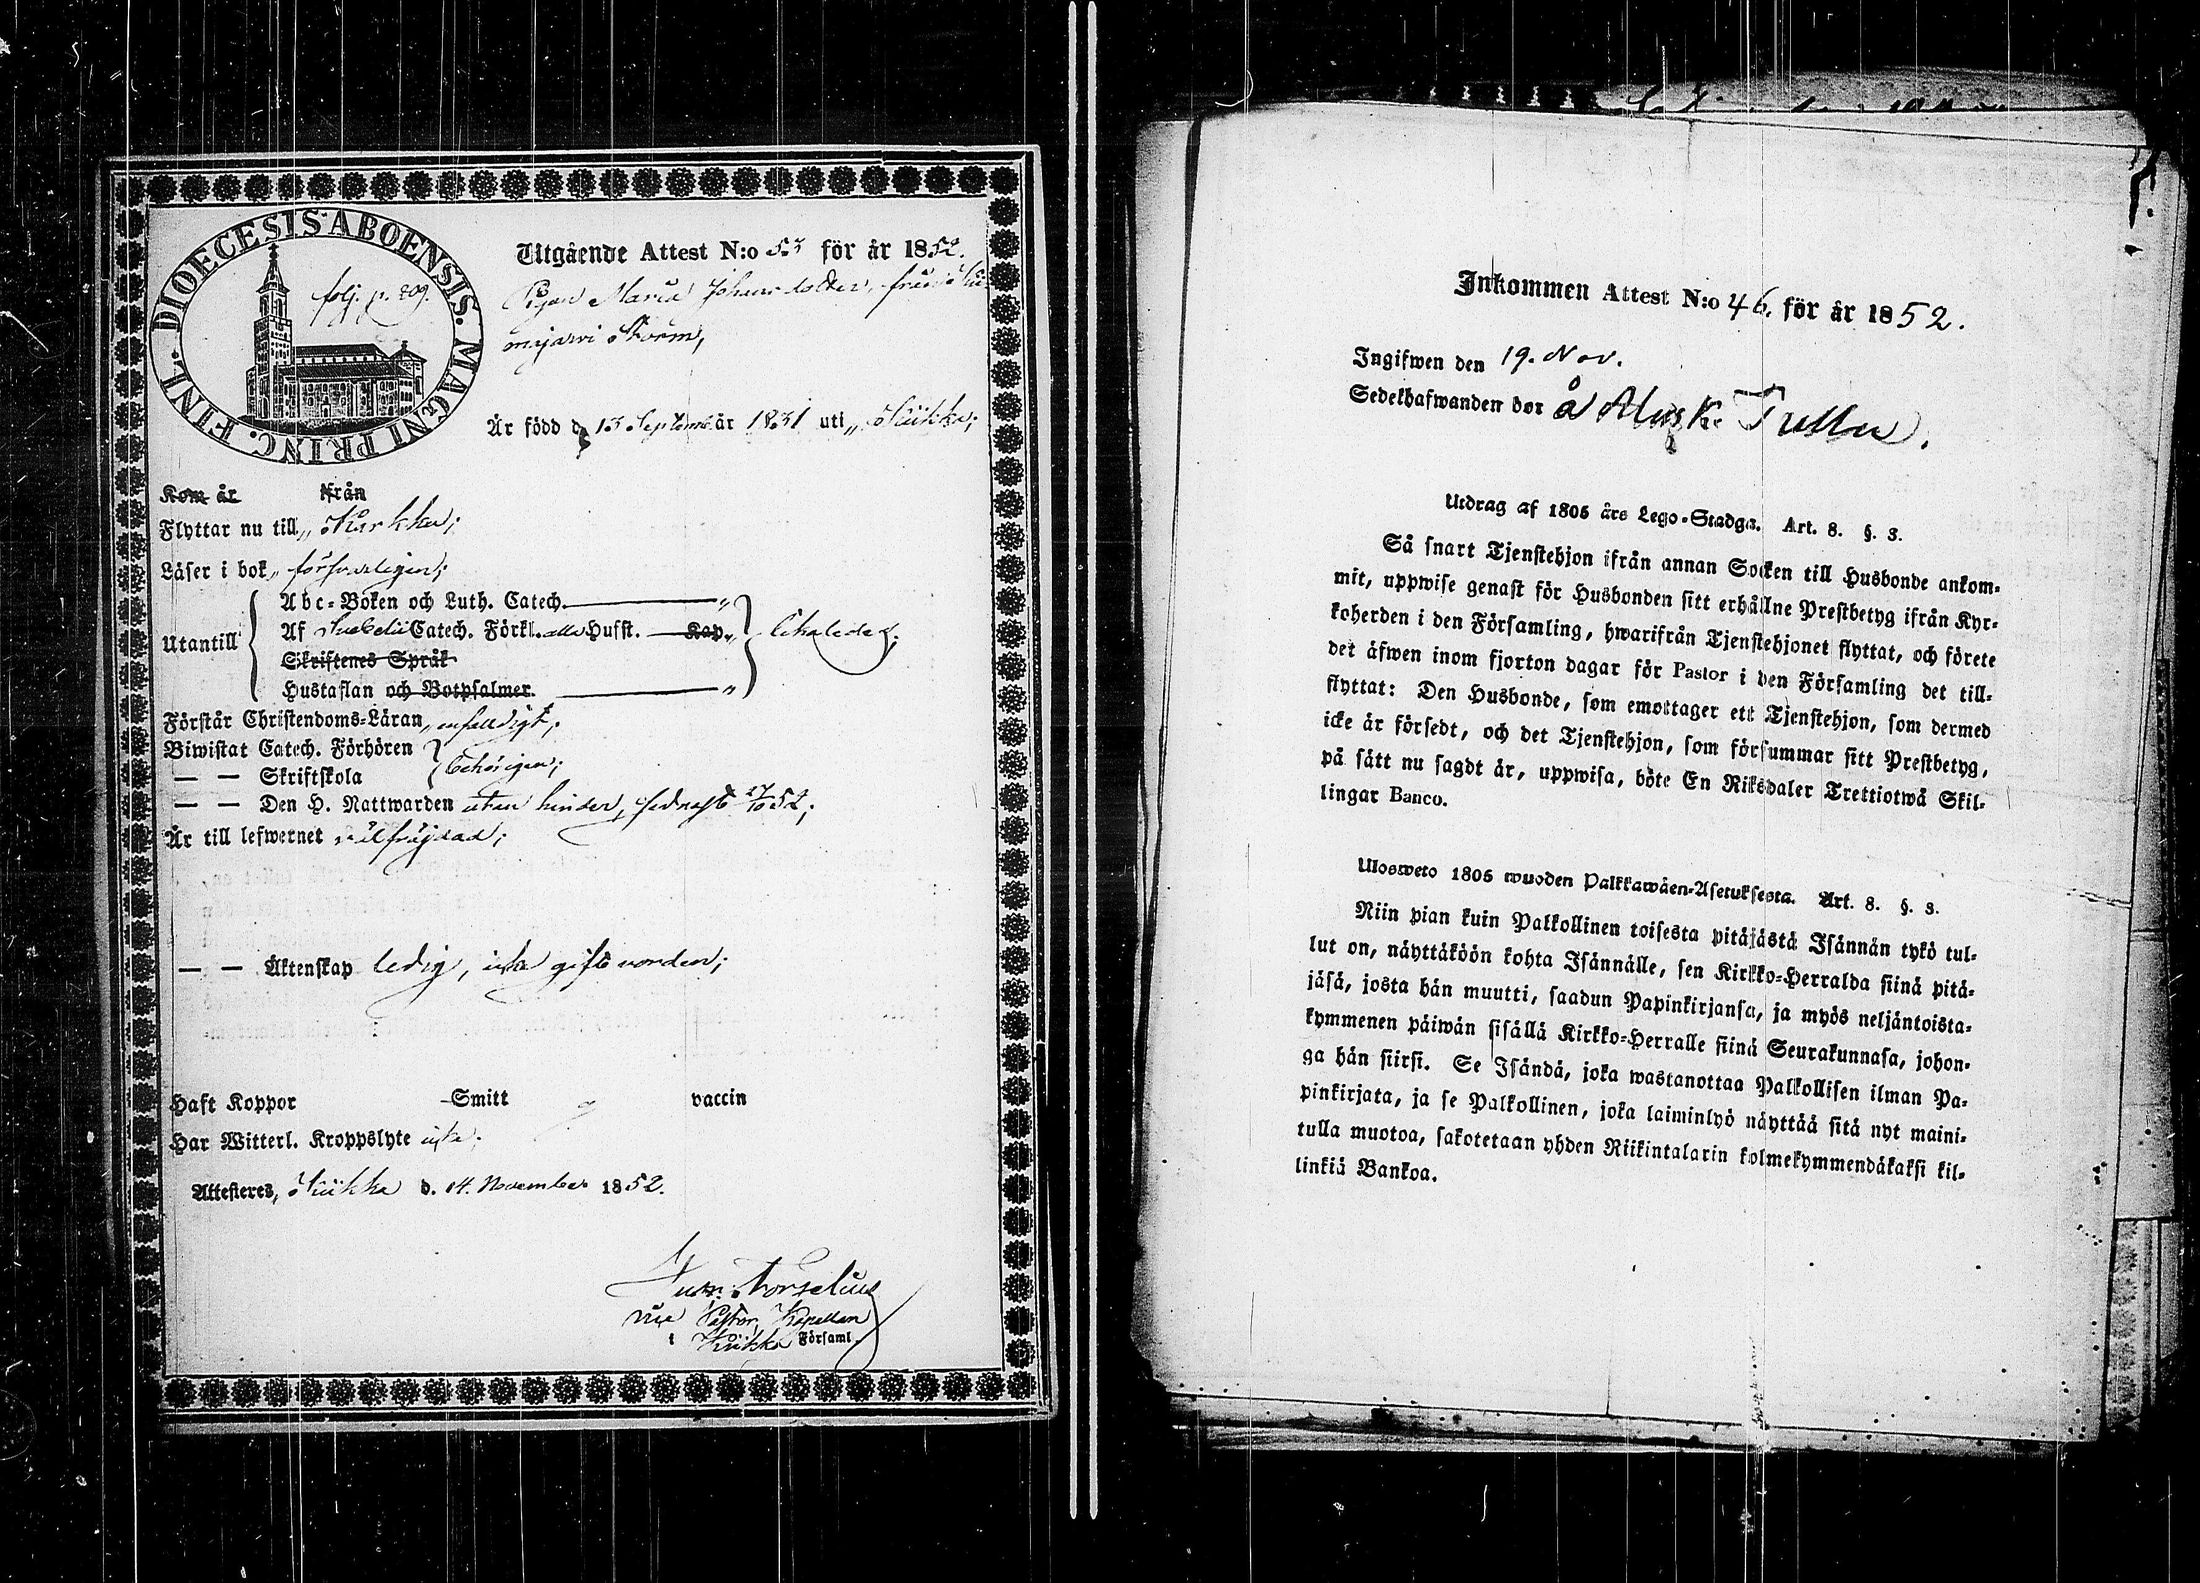 DIOECESIS ABOENSIS. MAGNI PRINC. FINL.
folj. p. 209.
Utgående Attest N:o 53 för år 1852.
Pigan Maria Johansdotter, från
majarvi Storm,
Är född d. 13 Septemb. år 1831 uti „ Kiikka;
Kom år från
Flyttar nu till „ Karkku;
Läser i bok „ försvarligen;
Utantill
Abc-Boken och Luth. Catech. „
Af Svebelii Catech. Förkl. alla Hufst. Kap. „
Skriftenes Språk
Hustaflan och Botpsalmer. „
Förstår Christendoms-Läran „ enfaldigt;
Biwistat Catech. Förhören
— — Skriftskola behörigen;
— — Den H. Nattwarden utan hinder, sednast 27/10 52;
Är till lefwernet välfräjdad;
— — Äktenskap ledig, icke gift vorden;
Haft Koppor Smitt vaccin
Har Witterl. Kroppslyte icke;
Attesteres, Kiikka d. 14. November 1852.
vice Pastor, Kapellan
i Kiikka Församl.
Inkommen Attest N:o 46. för år 1852.
Ingifwen den 19. Nov.
Sedelhafwanden bor å
Utdrag af 1805 års Lego-Stadga. Art. 8. §. 3.
Så snart Tjenstehjon ifrån annan Socken till Husbonde ankom-
mit, uppwise genast för Husbonden sitt erhållne Prestbetyg ifrån Kyr-
koherden i den Församling, hwarifrån Tjenstehjonet flyttat, och förete
det äfwen inom fjorton dagar för Pastor i den Församling det till-
flyttat: Den Husbonde, som emottager ett Tjenstehjon, som dermed
icke är försedt, och det Tjenstehjon, som försummar sitt Prestbetyg,
på sätt nu sagdt är, uppwisa, böte En Riksdaler Trettiotwå Skil-
lingar Banco.
Ulosweto 1805 wuoden Palkkawäen-Asetuksesta. Art. 8. §. 3.
Niin pian kuin Palkollinen toisesta pitäjästä Isännän tykö tul-
lut on, näyttäköön kohta Isännälle, sen Kirkko-Herralda siinä pitä-
jäsä, josta hän muutti, saadun Papinkirjansa, ja myös neljäntoista-
kymmenen päiwän sisällä Kirkko-Herralle siinä Seurakunnasa, johon-
ga hän siirsi. Se Isändä, joka wastanottaa Palkollisen ilman Pa-
pinkirjata, ja se Palkollinen, joka laiminlyö näyttää sitä nyt maini-
tulla muotoa, sakotetaan yhden Riikintalarin kolmekymmendäkaksi kil-
linkiä Bankoa.